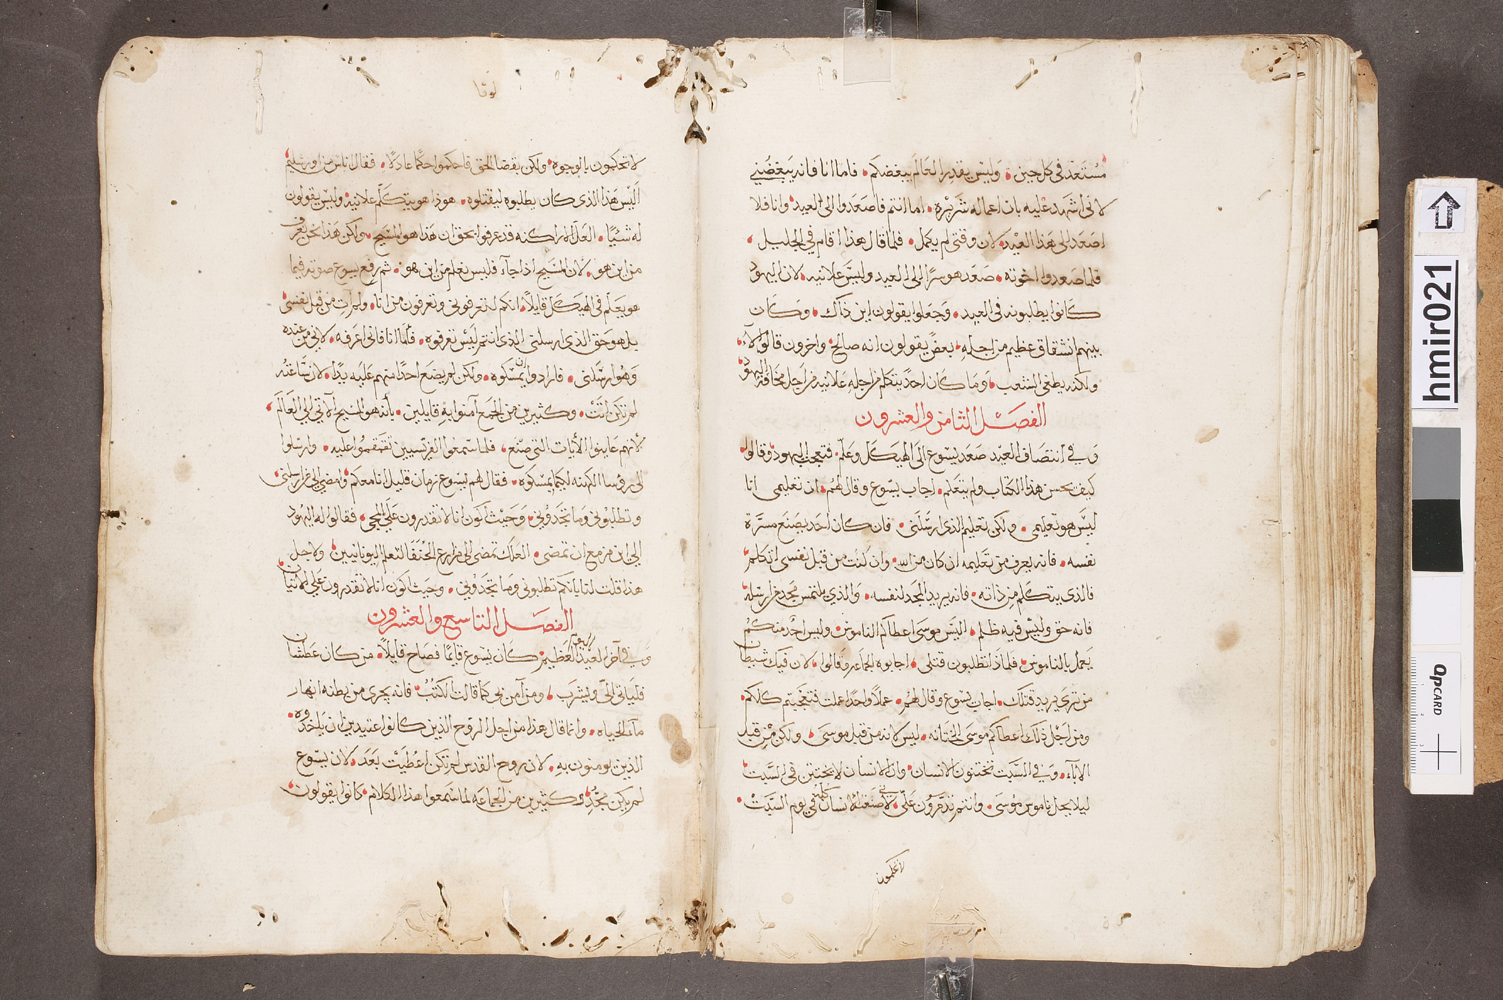 مستعد في كل حين. وليس يقدر العالم يبغضكم. فاما انا فانه يبغضني
لاني اشهد عليه بان اعماله شريرة. اما انتم فاصعدوا الى العيد. وانا فلا
اصعد الى هذا العيد. لان وقتي لم يكمل. فلما قال هذا اقام في الجليل.
فلما صعدوا اخوته. صعد هو سرًا الى العيد وليس علانيه. لان اليهود
كانوا يطلبونه في العيد. وجعلوا يقولون اين ذاك. وكان
بينهم انشقاق عظيم من اجله. بعض يقولون انه صالح. واخرون قالوا لا.
ولكنه يطغي الشعب. وما كان احد يتكلم من اجله علانيه من اجل مخافة اليهود
الفصل الثامن والعشرون
وفي انتصاف العيد صعد يسوع الى الهيكل وعلّم. فتعجب اليهود وقالوا
كيف يحسن هذا الكتاب ولم يتعلم. اجاب يسوع وقال لهم. ان تعليمي انا
ليس هو تعليمي. ولكن تعليم الذي ارسلني. فان كان احد يصنع مسرّة
نفسه. فانه يعرف من تعليمه ان كان من الله. وان كنت من قبل نفسي اتكلم
فالذي يتكلم من ذاته. فانه يريد المجد لنفسه. والذي يلتمس مجد من ارسله
فانه حق وليس فيه ظلم. اليس موسى اعطاكم الناموس. وليس احد منكم
يعمل بالناموس. فلماذا تطلبون قتلي. اجابوه الجماعه وقالوا. لان فيك شيطان
من ترى يريد قتلك. اجاب يسوع وقال لهم. عملاً واحدًا عملت فتعجبتم كلكم.
ومن اجل ذلك اعطاكم موسى الختانه. ليس لانه من قبل موسى. ولكن من قبل
الاباء. وفي السبت تختنون الانسان. وان الانسان لا يختتن في السبت
ليلا يحل ناموس موسى. وانتم تتذمرون عليّ. لاني صنعت انسان كله في يوم السبت.
لا تحكمون
لوقا
لا تحكمون بالوجوه. ولكن بقضا الحق فاحكموا حكمًا عادلاً. فقال ناس من اورشليم
اليس هذا الذي كان يطلبوه ليقتلوه. هوذا هو يتكلم علانيه. وليس يقولون
له شيًا. العل الاراكنه قد عرفوا بحق ان هذا هو المسيح. ولكن هذا نحن نعرف
من اين هو. لان المسيح اذا جآء فليس نعلم من اين هو. ثم رفع يسوع صوته فيما
هو يعلم في الهيكل قايلاً. انكم لتعرفوني وتعرفون من انا. ولم ات من قبل نفسي
بل هو حق الذي ارسلني الذي انتم ليس تعرفوه. فاما انا فاني اعرفه. لاني من عنده
وهو ارسلني. فارادوا ان يمسكوه. ولكن لم يضع احدًا منهم عليه يدًا. لان ساعته
لم تكن اتت. وكثيرين من الجمع آمنوا به قايلين. بانه هو المسيح الاتي الى العالم
لانهم عاينوا الآيات التي صنع. فلما سمعوا الفريسيين تقمقموا عليه. وارسلوا
الى روسا الكهنه لكيما يمسكوه. فقال لهم يسوع زمان قليل انا معكم. وامضي الى من ارسلني.
وتطلبوني وما تجدوني. وحيث اكون انا لا تقدرون على المجي. فقالوا له اليهود
الى اين مزمع ان تمضي. العلك تمضي الى مزارع الحنفا لتعلم اليونانيين. ولاجل
هذا قلت لنا بانكم تطلبوني وما تجدوني. وحيث اكون انا لا تقدرون على الاتيان
الفصل التاسع والعشرون
وفي آخر العيد العظيم. كان يسوع قايمًا فصاح قايلاً. من كان عطشان
فلياتي الي ويشرب. ومن آمن بي كما قالت الكتب. فانه يجري من بطنه انهار
مآء الحياه. وانما قال هذا من اجل الروح الذين كانوا عتيدين بان ياخذوه.
الذين يومنون به. لان روح القدس لم تكن اعطيت بعد. لان يسوع
لم يكن مُجّد. فكثيرين من الجماعه لما سمعوا هذا الكلام. كانوا يقولون.
hmir021
QPCARD